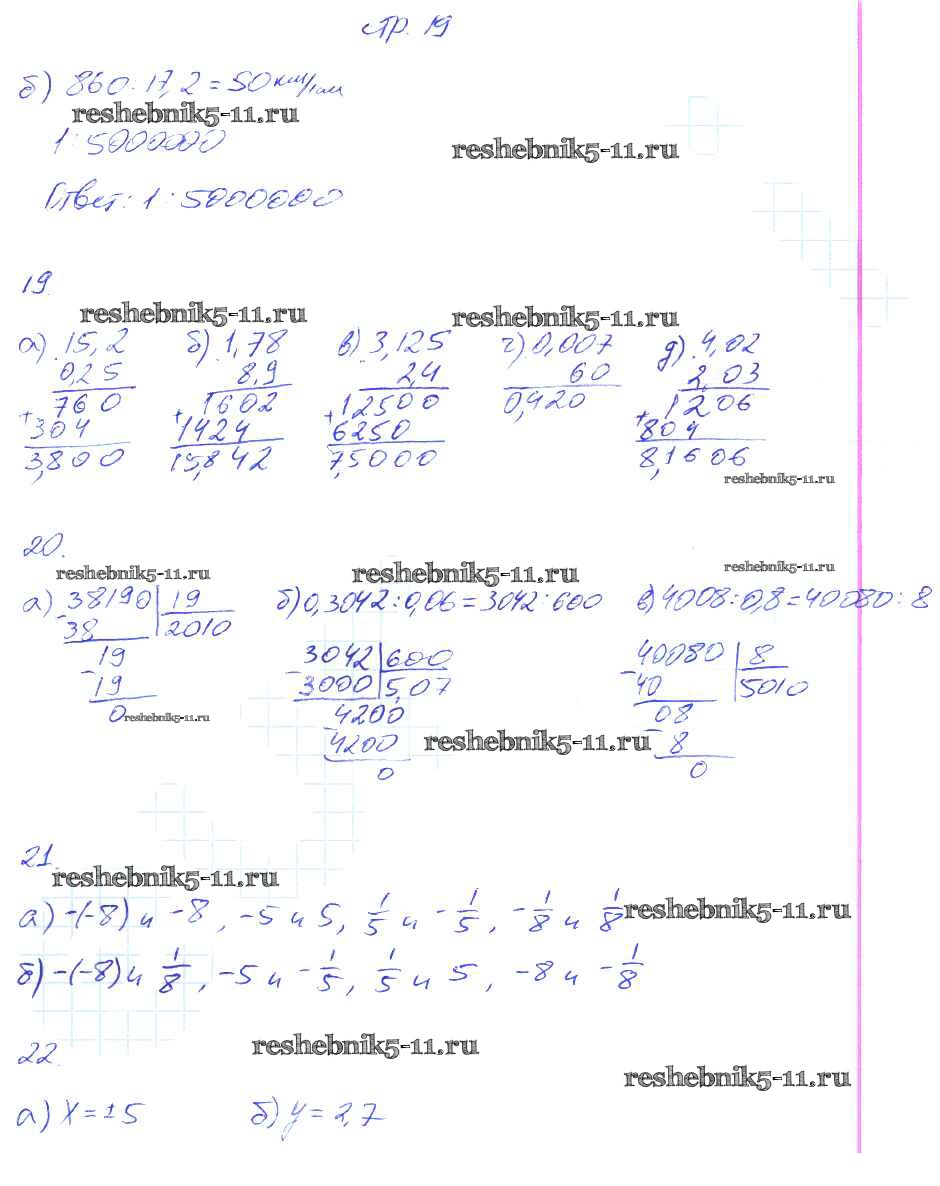 стр. 19
б) 860 : 17,2 = 50 км/см
reshebnik5-11.ru
1 : 5000000
reshebnik5-11.ru
Ответ: 1 : 5000000
19.
reshebnik5-11.ru reshebnik5-11.ru
а) 15,2 б) 1,78 в) 3,125 г) 0,007 д) 4,02
0,25 8,9 2,4 60 2,03
760 1602 12500 0,420 1206
+ 304 + 1424 + 6250 + 804
3,800 15,842 7,5000 8,1606
reshebnik5-11.ru
20.
reshebnik5-11.ru reshebnik5-11.ru reshebnik5-11.ru
а) 38190 | 19 б) 0,3042 : 0,06 = 3042 : 600 в) 4008 : 0,8 = 40080 : 8
- 38 2010
- 19 - 3042 | 600 - 40080 | 8
19 3000 5,07 40 5010
0 reshebnik5-11.ru - 4200 - 08
4200 reshebnik5-11.ru 8
0 0
21.
reshebnik5-11.ru
а) -(-8) и -8, -5 и 5, 1/5 и -1/5, -1/8 и 1/8 reshebnik5-11.ru
б) -(-8) и 1/8, -5 и -1/5, 1/5 и 5, -8 и -1/8
22.
reshebnik5-11.ru
reshebnik5-11.ru
а) x = ±5 б) y = 2,7